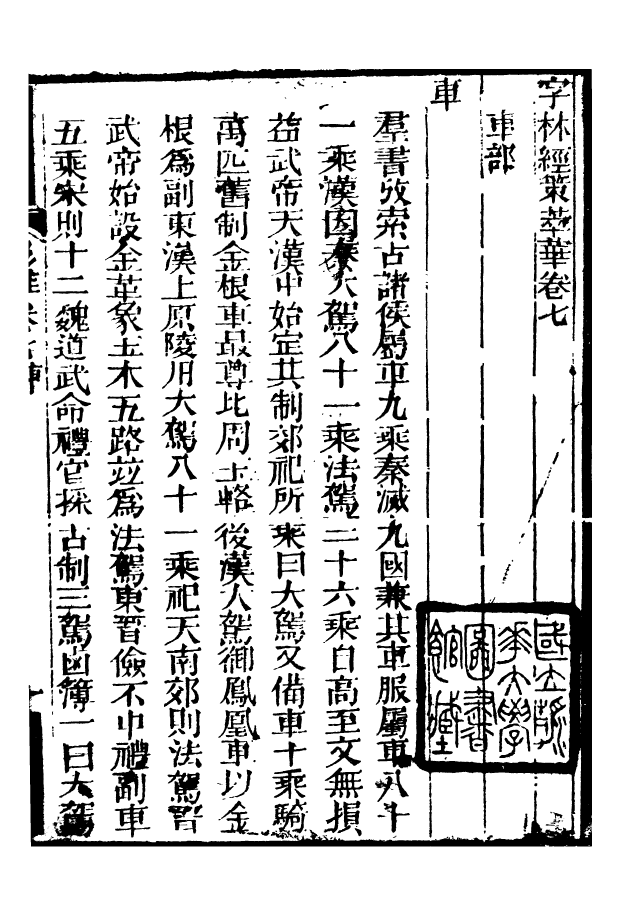 字林經策萃華卷七
車部
車
羣書攷索古諸侯屬車九乘秦滅九國兼其車服屬車八十
一乘漢因秦大駕八十一乘法駕三十六乘自高至文無損
益武帝天漢中始定其制郊祀所乘曰大駕又備車十乘騎
萬匹舊制金根車最尊比周玉輅後漢大駕御鳳凰車以金
根爲副東漢上原陵用大駕八十一乘祀天南郊則法駕晉
武帝始設金革象玉木五路竝爲法駕東晉儉不中禮副車
五乘宋則十二魏道武命禮官採古制三駕鹵簿一曰大駕
國立清華大學圖書館藏